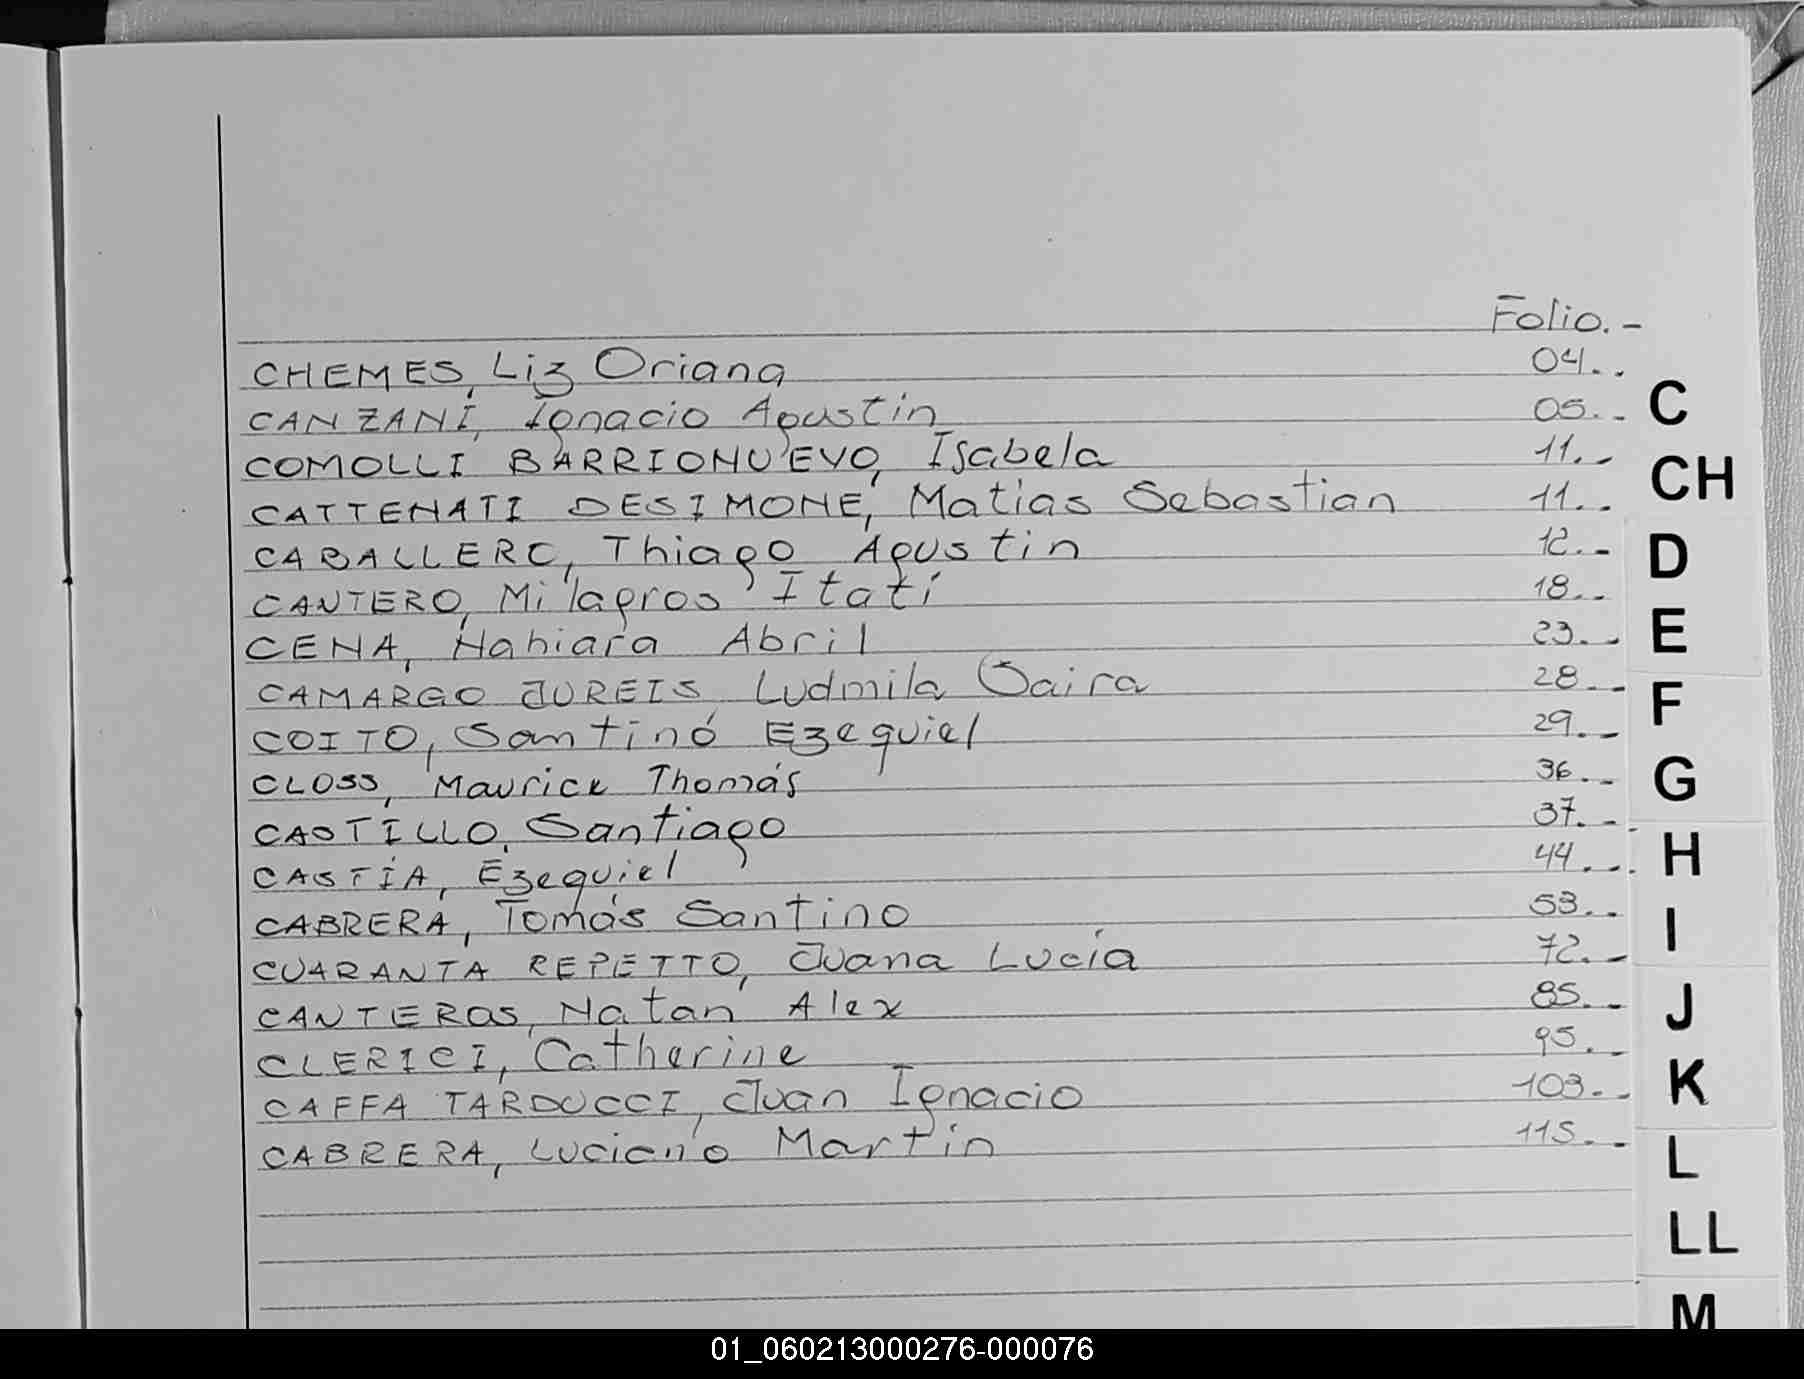 Folio.-
CHEMES, Liz Oriana 04.-
CANZANÍ, Ignacio Agustin 05.-
COMOLLI BARRIONUEVO, Isabela 11.-
CATTENATI DESIMONE, Matias Sebastian 11.-
CABALLERO, Thiago Agustin 12.-
CANTERO, Milagros Itatí 18.-
CENA, Nahiara Abril 23.-
CAMARGO JUREIS Ludmila Saira 28.-
COITO, Santino Ezequiel 29.-
CLOSS, Maurice Thomás 36.-
CASTILLO, Santiago 37.-
CASTÍA, Ezequiel 44.-
CABRERA, Tomás Santino 53.-
CUARANTA REPETTO, Juana Lucía 72.-
CANTEROS, Natan Alex 85.-
CLERICI, Catherine 95.-
CAFFA TARDUCCI, Juan Ignacio 103.-
CABRERA, Luciano Martin 115.-
C
CH
D
E
F
G
H
I
J
K
L
LL
M
01_060213000276-000076